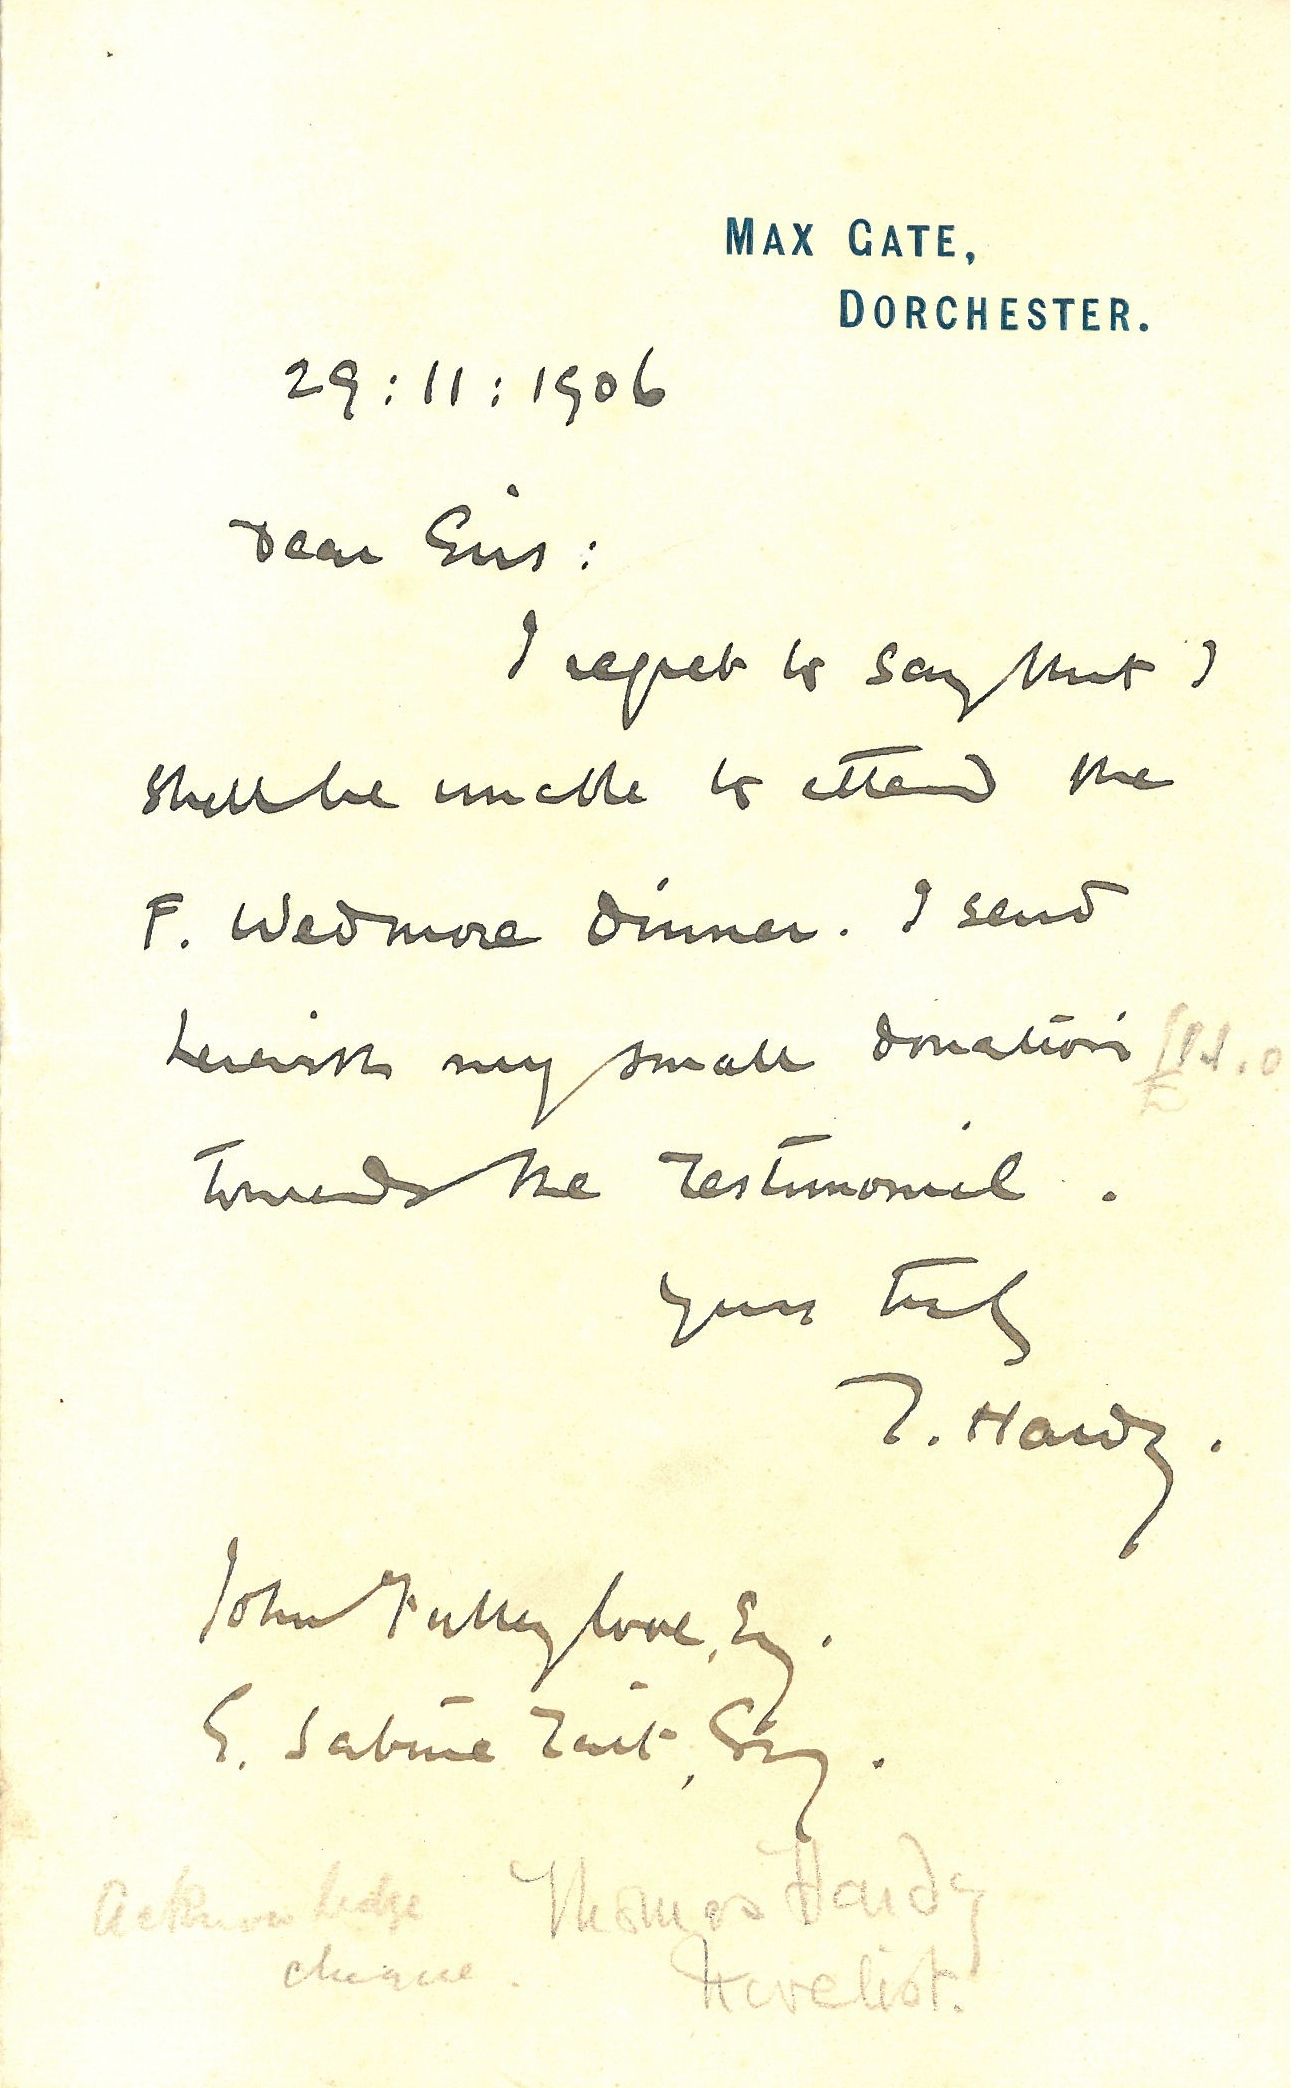 MAX GATE,
DORCHESTER.
29:11:1906
Dear Sirs:
I regret to say that I
shall be unable to attend the
F. Wedmore dinner. I send
herewith my small donation
towards the testimonial.
Yours truly
T. Hardy.
John Fulleylove, Esq.
E. Sabine Tait, Esq.
Acknowledge
cheque.
Thomas Hardy
Novelist.